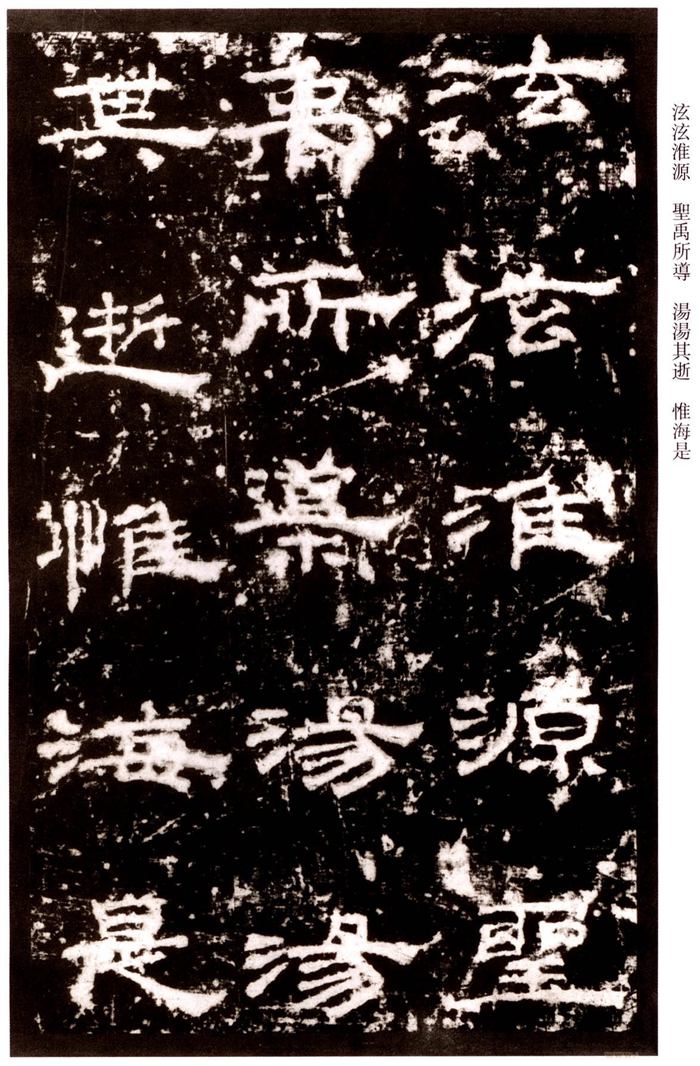 泫泫淮源聖
禹所導湯湯
其逝惟海是
泫泫淮源　聖禹所導　湯湯其逝　惟海是